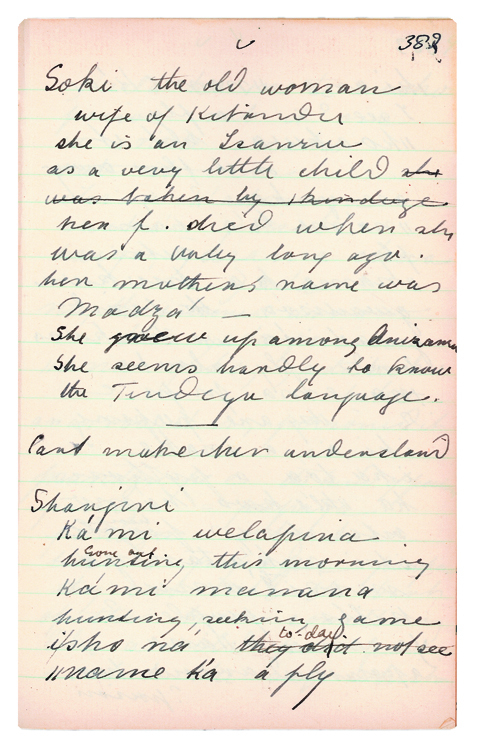 389
Soki the old woman
wife of Kitandu
she is an Isanzu
as a very little child she
was taken by
her f. died when she
was a baby long ago.
her mother's name was
Madza' —
She grew up among
She seems hardly to know
the Tindega language.
Cant make her understand
Shangini
Ká mi welapina
gone out
hunting this morning
Ká mi manana
hunting, seeking game
to-day.
ísho ná they did not see
name ka a ply